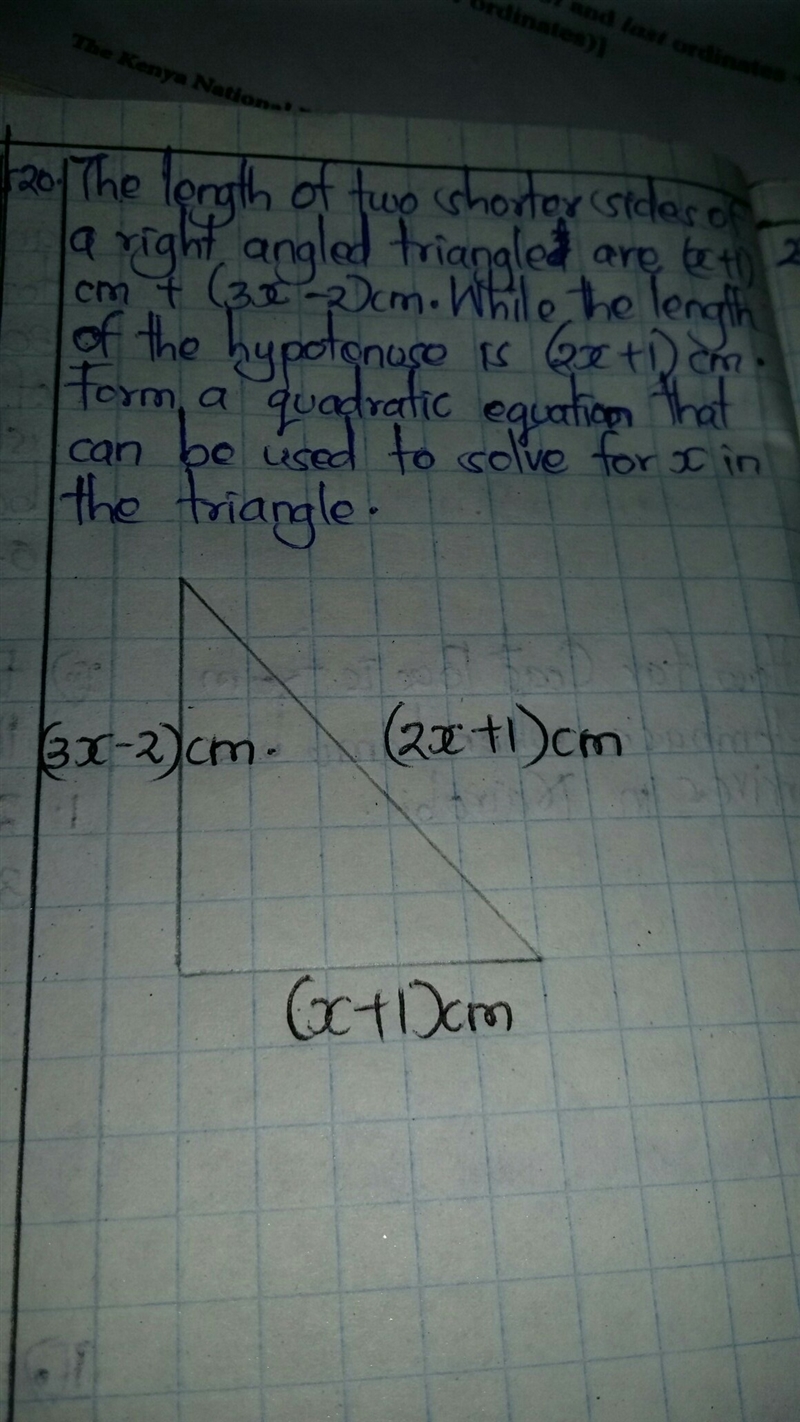 and last ordinates
ordinates)]
The Kenya National
20. The length of two shorter sides of
a right angled triangle are (x+1)
cm + (3x-2)cm. While the length
of the hypotenuse is (2x+1) cm.
Form a quadratic equation that
can be used to solve for x in
the triangle.
(3x-2)cm.
(2x+1)cm
(x+1)cm